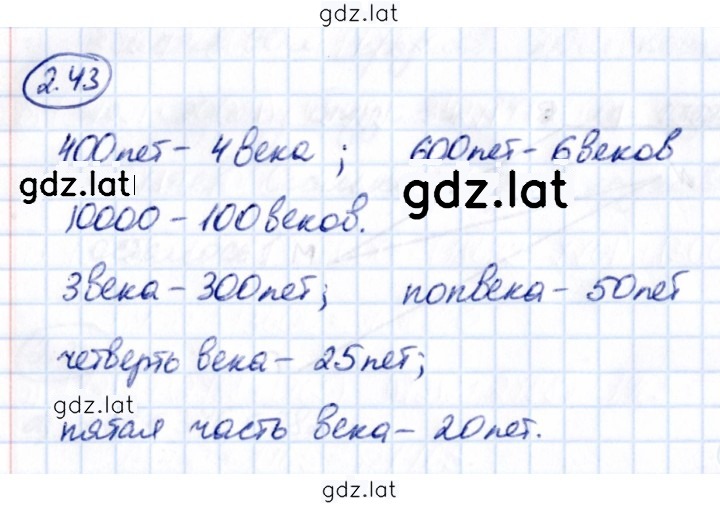 gdz.lat
2.43
400лет - 4 века ; 600лет - 6 веков
gdz.lat gdz.lat
10000 - 100 веков.
3 века - 300 лет; полвека - 50 лет
четверть века - 25 лет;
gdz.lat
пятая часть века - 20 лет.
gdz.lat